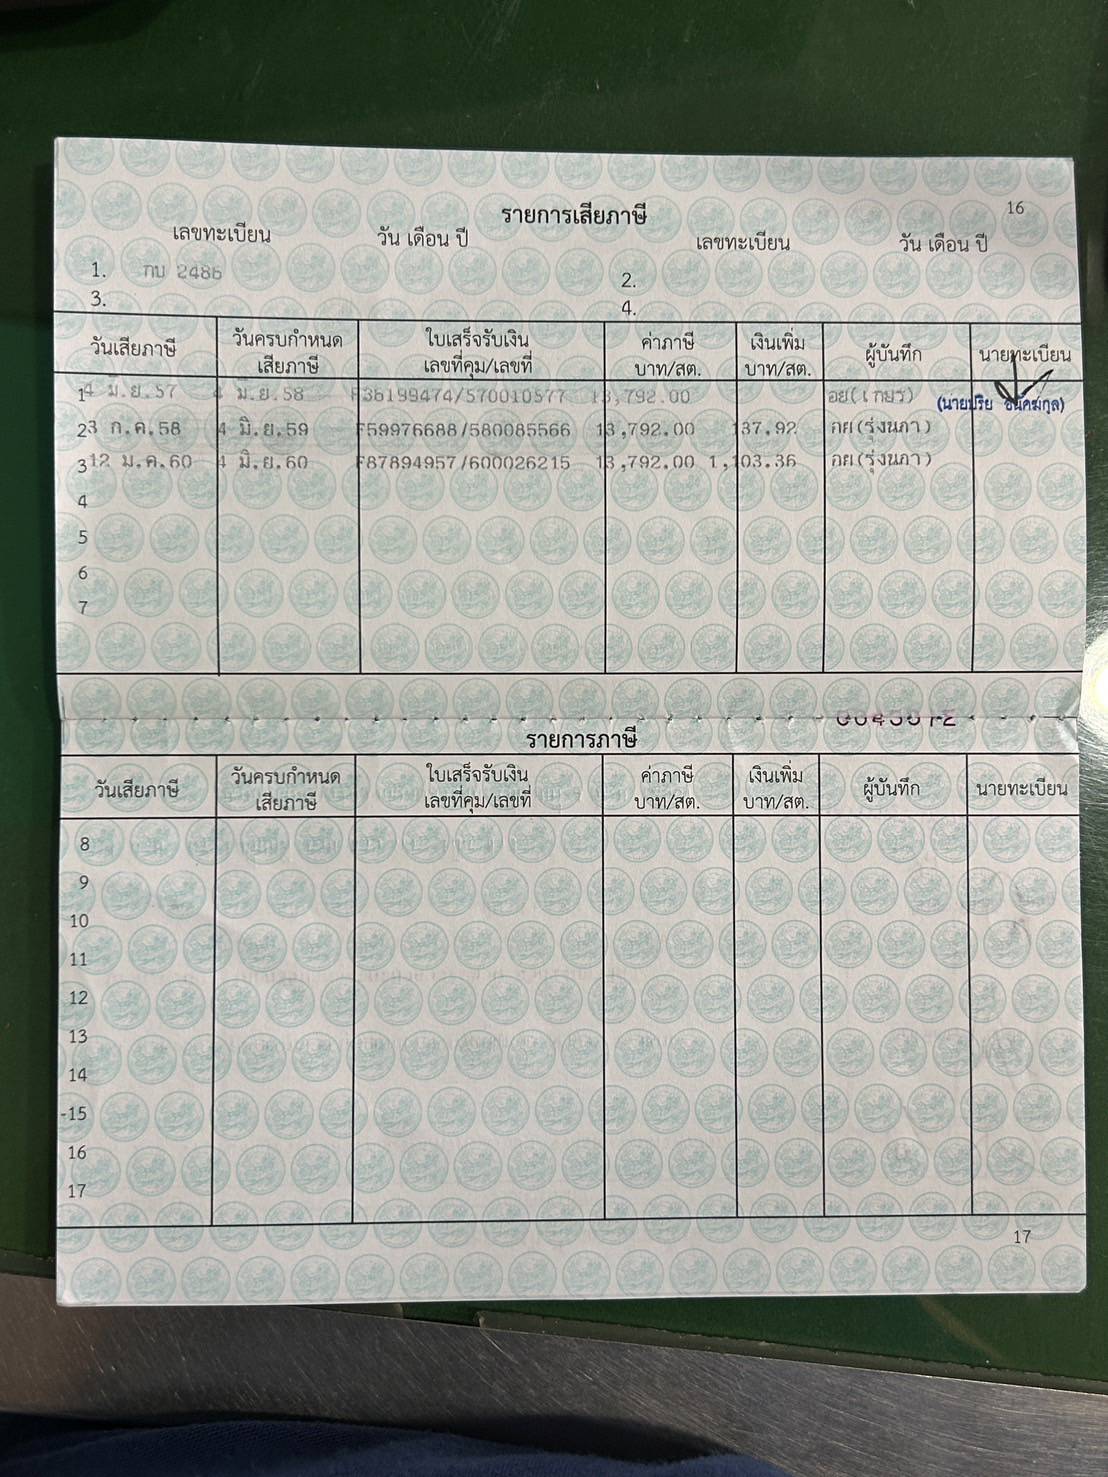 16
รายการเสียภาษี
เลขทะเบียน วัน เดือน ปี เลขทะเบียน วัน เดือน ปี
1. กบ 2486 2.
3. 4.
วันเสียภาษี วันครบกำหนด เสียภาษี ใบเสร็จรับเงิน เลขที่คุม/เลขที่ ค่าภาษี บาท/สต. เงินเพิ่ม บาท/สต. ผู้บันทึก นายทะเบียน
1 4 มิ.ย.57 4 มิ.ย.58 F36199474/570010577 13,792.00
2 3 ก.ค.58 4 มิ.ย.59 F59976688/580085566 13,792.00 137.92 กย(รุ่งนภา)
3 12 ม.ค.60 4 มิ.ย.60 F87894957/600026215 13,792.00 1,103.36 กย(รุ่งนภา)
4
5
6
7
รายการภาษี
วันเสียภาษี วันครบกำหนด เสียภาษี ใบเสร็จรับเงิน เลขที่คุม/เลขที่ ค่าภาษี บาท/สต. เงินเพิ่ม บาท/สต. ผู้บันทึก นายทะเบียน
8
9
10
11
12
13
14
-15
16
17
17